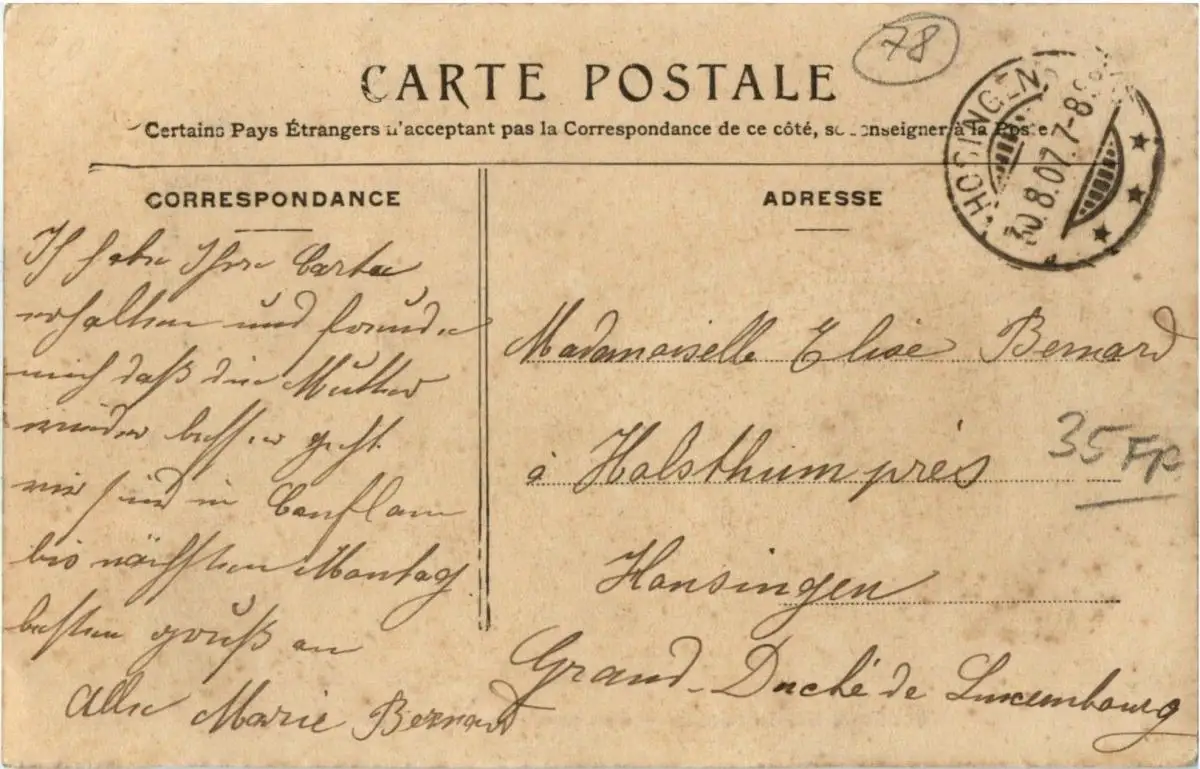 78
CARTE POSTALE
Certains Pays Étrangers n'acceptant pas la Correspondance de ce côté, se renseigner à la Poste
HOSINGEN
30.8.07. 7-8
CORRESPONDANCE
Ich habe Ihre Carte
erhalten und freude
mich daß die Mutter
wieder besser geht
wir sind in Conflans
bis nächsten Montag
besten gruß an
Alle Marie Bernard
ADRESSE
Mademoiselle Elise Bernard
à Holsthum près
35 FR
Honsingen
Grand-Duché de Luxembourg